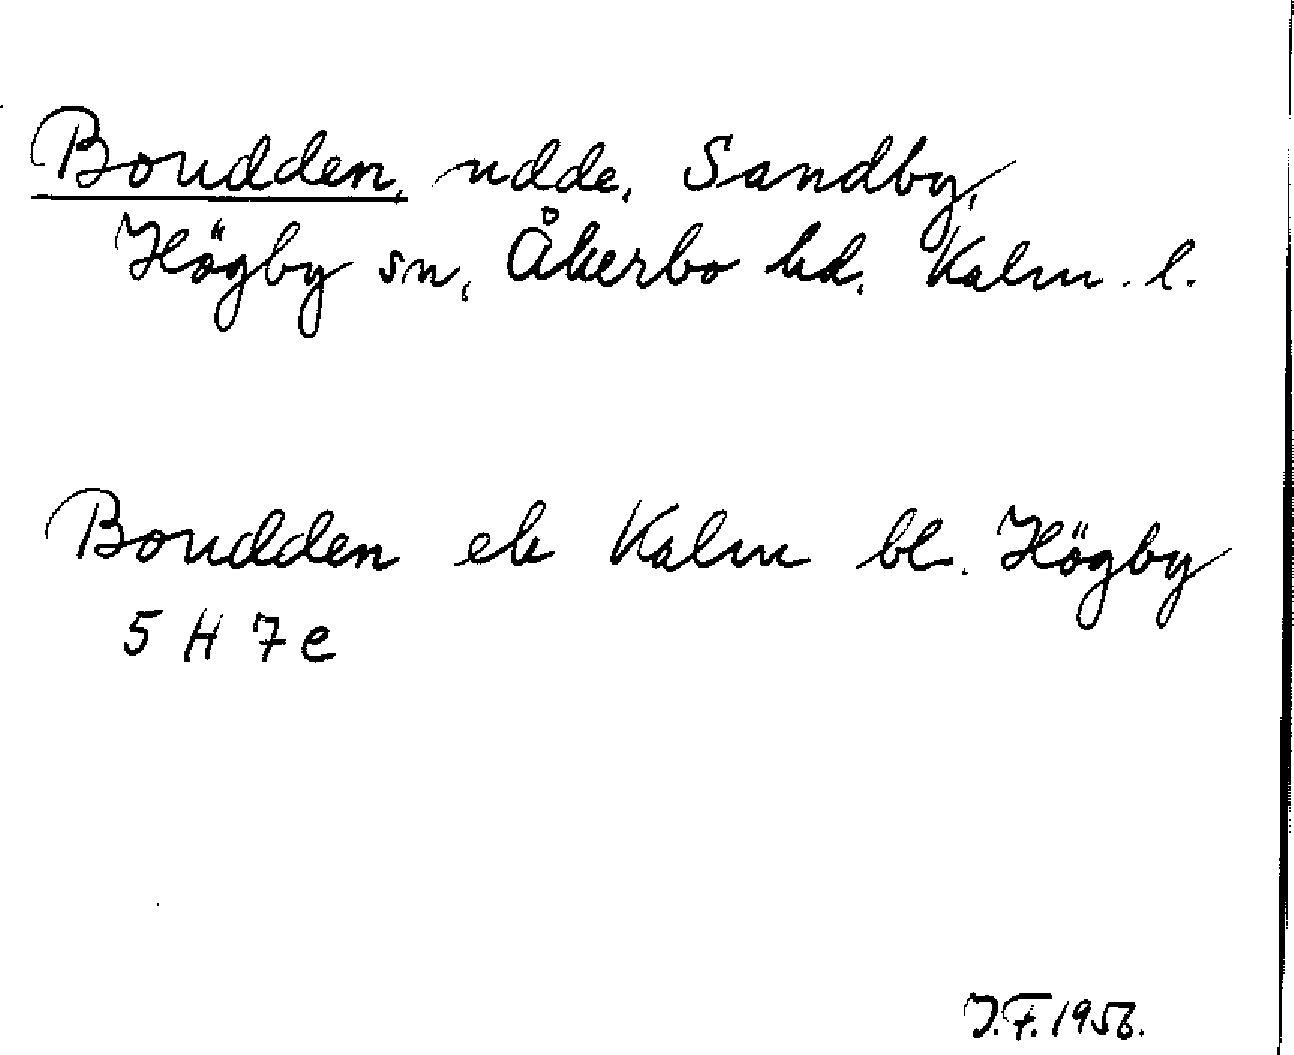 Boudden, udde, Sandby,
Högby sn, Åkerbo hd, Kalm. l.
Boudden ek Kalm bl. Högby
5 H 7 e
J.F. 1956.